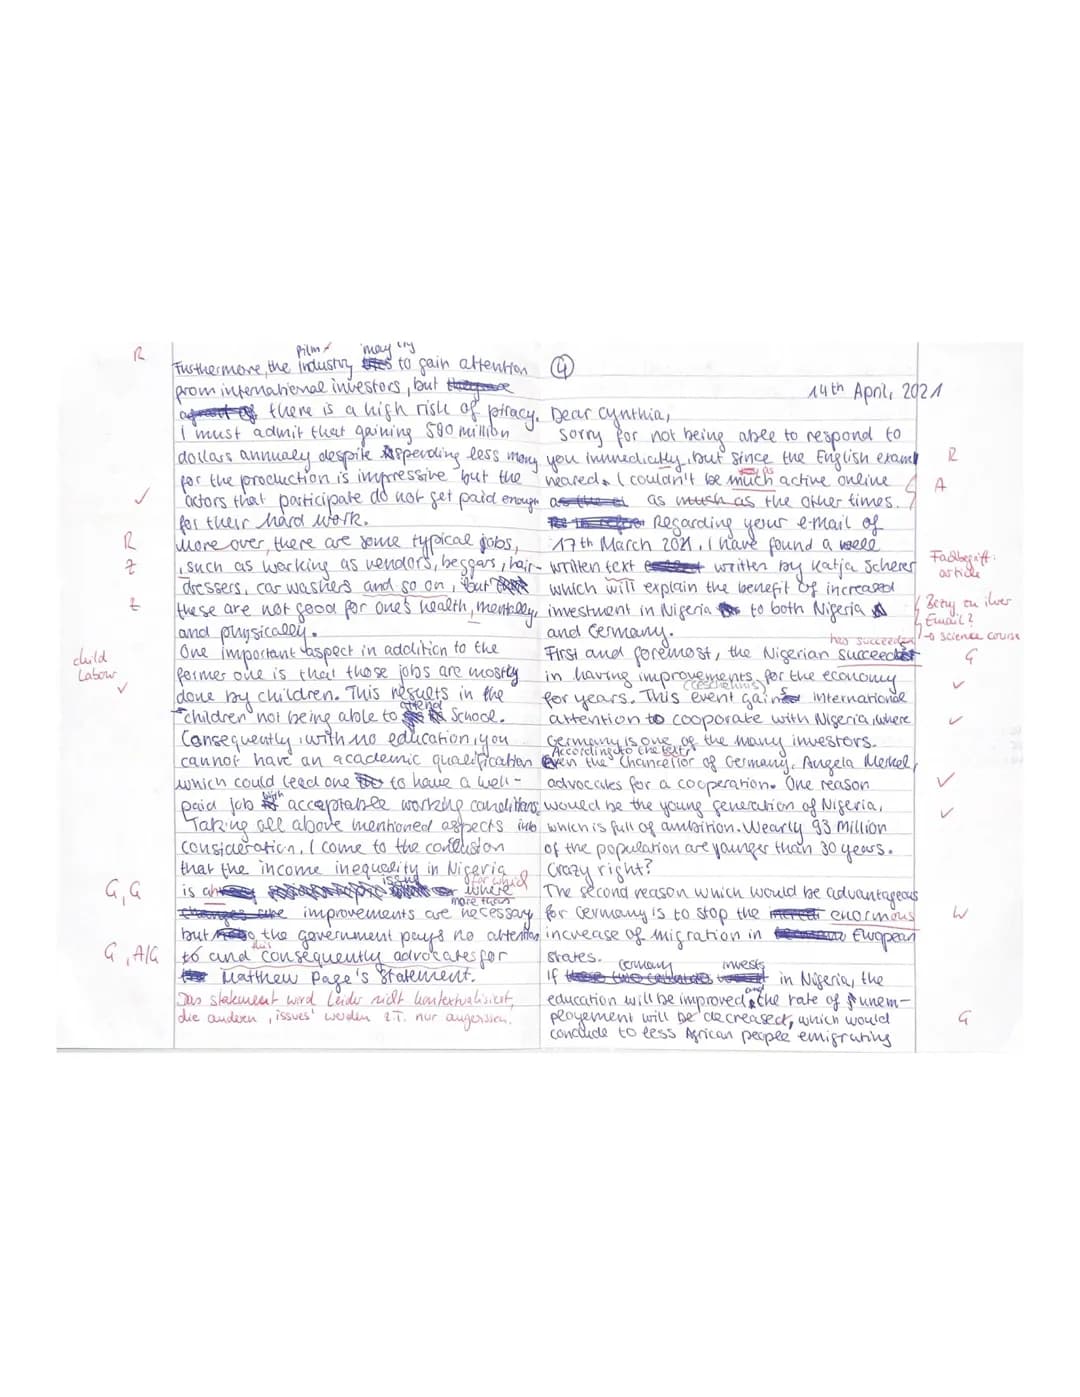 R
Film
may try
Furthermore, the industry to gain attention
from international investors, but
there is a high risk of piracy.
I must admit that gaining 590 million
dollars annualy despite spending less mony
for the production is impressive but the
✓
actors that participate do not get paid enough
for their hard work.
R
Moreover, there are some typical jobs,
Z
such as working as vendors, beggars, hair-
dressers, car washers and so on, but
Z
these are not good for one's health, mentally,
and physically.
child
labour
✓
One important aspect in addition to the
former one is that those jobs are mostly
done by children. This results in the
attend
children not being able to School.
Consequently, with no education, you
cannot have an academic qualification
which could lead one to have a well-
with
paid job acceptable working conditions.
Taking all above mentioned aspects into
consideration, I come to the conclusion
that the income inequality in Nigeria
issue
for which
G, G
is a where
more than
improvements are necessary
but the government pays no attention
this
G, A/G
to and consequently advocates for
Matthew Page's statement.
Das statement wird leider nicht kontextualisiert,
die anderen 'issues' werden z.T. nur angerissen.
④
14th April, 2021
Dear Cynthia,
Sorry for not being able to respond to
you immediatly, but since the English exam
R
as
neared, I couldn't be much active online
A
as much as the other times.
Regarding your e-mail of
17th March 2021, I have found a well
written text written by Katja Scherer
Fachbegriff:
article
which will explain the benefit of increased
investment in Nigeria to both Nigeria
Bezug zu ihrer
Email?
→ science course
and Germany.
has succeeded
First and foremost, the Nigerian succeeds
G
in having improvements for the economy
✓
(Geschehnis)
for years. This event gains international
attention to cooporate with Nigeria, where
✓
Germany is one of the many investors.
According to the text,
Even the Chancellor of Germany, Angela Merkel,
advocates for a cooperation. One reason
✓
would be the young generation of Nigeria,
✓
which is full of ambition. Nearly 93 Million
of the population are younger than 30 years.
Crazy right?
The second reason which would be advantageous
for Germany is to stop the enormous
W
increase of migration in European
states.
Germany
invests
If in Nigeria, the
and
education will be improved, the rate of unem-
ployement will be decreased, which would
G
conclude to less African people emigrating